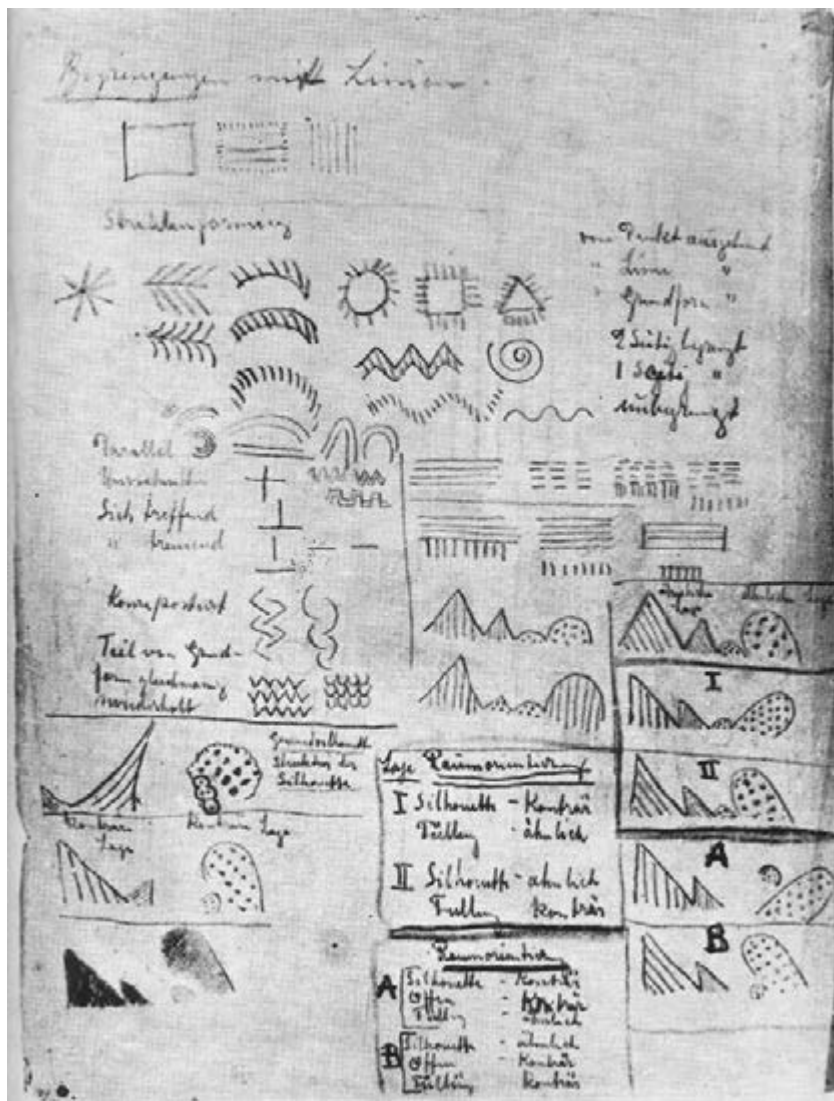 Begrenzungen mit Linien.
Strahlenformig
vom Punkt ausgehend
" Linie "
" Grundform "
2 Seitig begrenzt
1 Seiti "
unbegrenzt
Parallel
Sich treffend
" trennend
Teil von Grund-
form gleichmässig
wiederholt
ähnliche Lage
ähnliche Lage
I
II
A
B
Struktur der
Silhouette
Konträre
Lage
Konträre Lage
Lage Raumorientierung
I Silhouette - Konträr
Füllung - ähnlich
II Silhouette - ähnlich
Füllung Konträr
Raumorientierung
A Silhouette - Konträr
Offen - Konträr
Füllung - ähnlich
B Silhouette - ähnlich
Offen - Konträr
Füllung Konträr